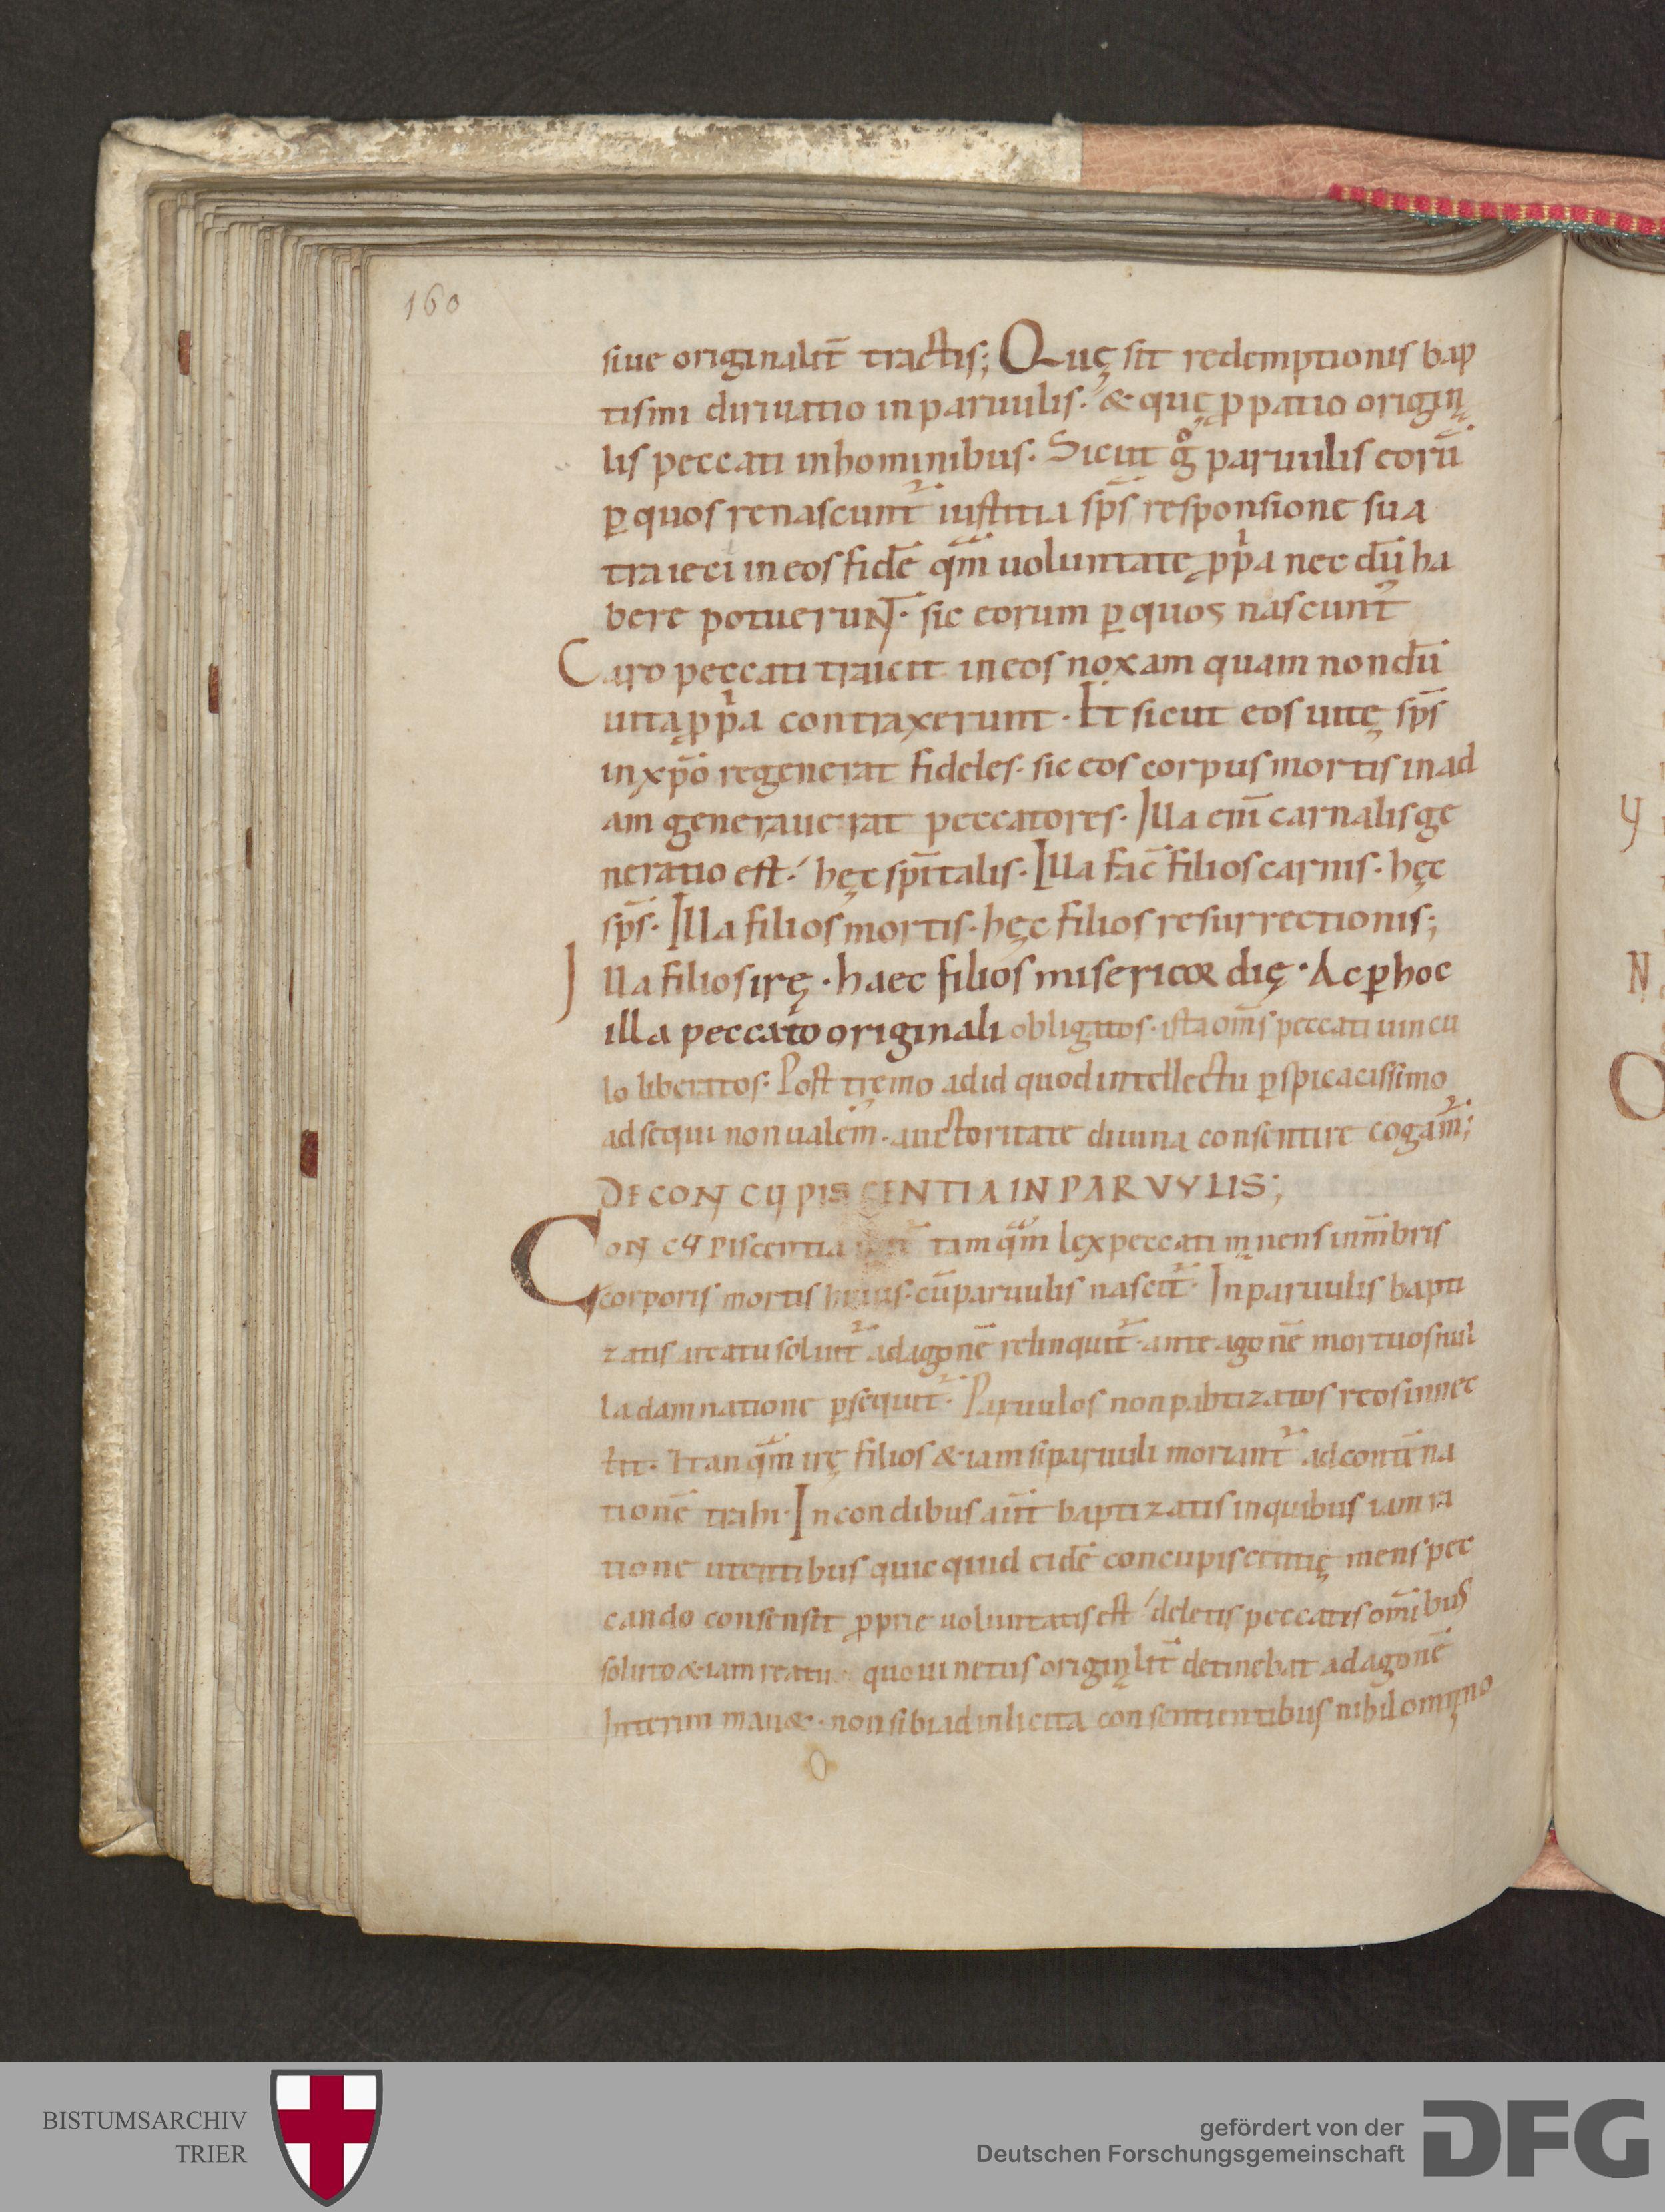 160
siue originalit̄ tractis; Quę sit redemptionis bap
tismi diriuatio in paruulis. & quę ꝓpatio origin
lis peccati in hominibus. Sicut gͦ paruulis eorū
ꝑ quos renascunt̄ iustitia sp̄s responsione sua
traieci in eos fidē qm̄ uoluntate ꝓp̍a nec dū ha
bere potuerunt. sic eorum ꝑ quos nascunt̄
Caro peccati traicit in eos noxam quam nondū
uita ꝓp̍a contraxerunt. Et sicut eos uitę sp̄s
in xp̄o regenerat fideles. sic eos corpus mortis in ad
am generauerat peccatores. Illa eni̅ carnalis ge
neratio est. hęc sp̄italis. Illa fac̄ filios carnis. hęc
sp̄s. Illa filios mortis. hęc filios resurrectionis;
Illa filios irę. haec filios misericordię. Ac ꝑ hoc
illa peccato originali obligatos. ista om̄s peccati uincu
lo liberatos. Post tremo ad id quod intellectu ꝑspicacissimo
adsequi non ualem̄. auctoritate diuina consentire cogam̄;
DE CONCUPISCENTIA IN PARVYLIS;
Concupiscentia tamqm̄ lex peccati mnens in m̄bris
corporis mortis huius. cū paruulis nascit̄. In paruulis bapti
zatis areatu soluit̄ ad agonē relinquit̄. ante agonē mortuos nul
la damnatione ꝑsequit̄. Paruulos non pabtizatos reos innec
tit. Itanqm̄ irę filios &iam si paruuli moriant̄ ad contina
tionē trahi. In condibus aut̄ baptizatis in quibus iam ra
tione utentibus quicquid eidē concupiscentię mens pec
cando consensit ꝓprie uoluntatis est deletis peccatis om̄ibus
soluto &iam reatu quo uinctus originlit̄ detinebat ad agonē
Interim man&. non sibi ad inlicita consentientibus nihil omnino
BISTUMSARCHIV
TRIER
gefördert von der
Deutschen Forschungsgemeinschaft
DFG